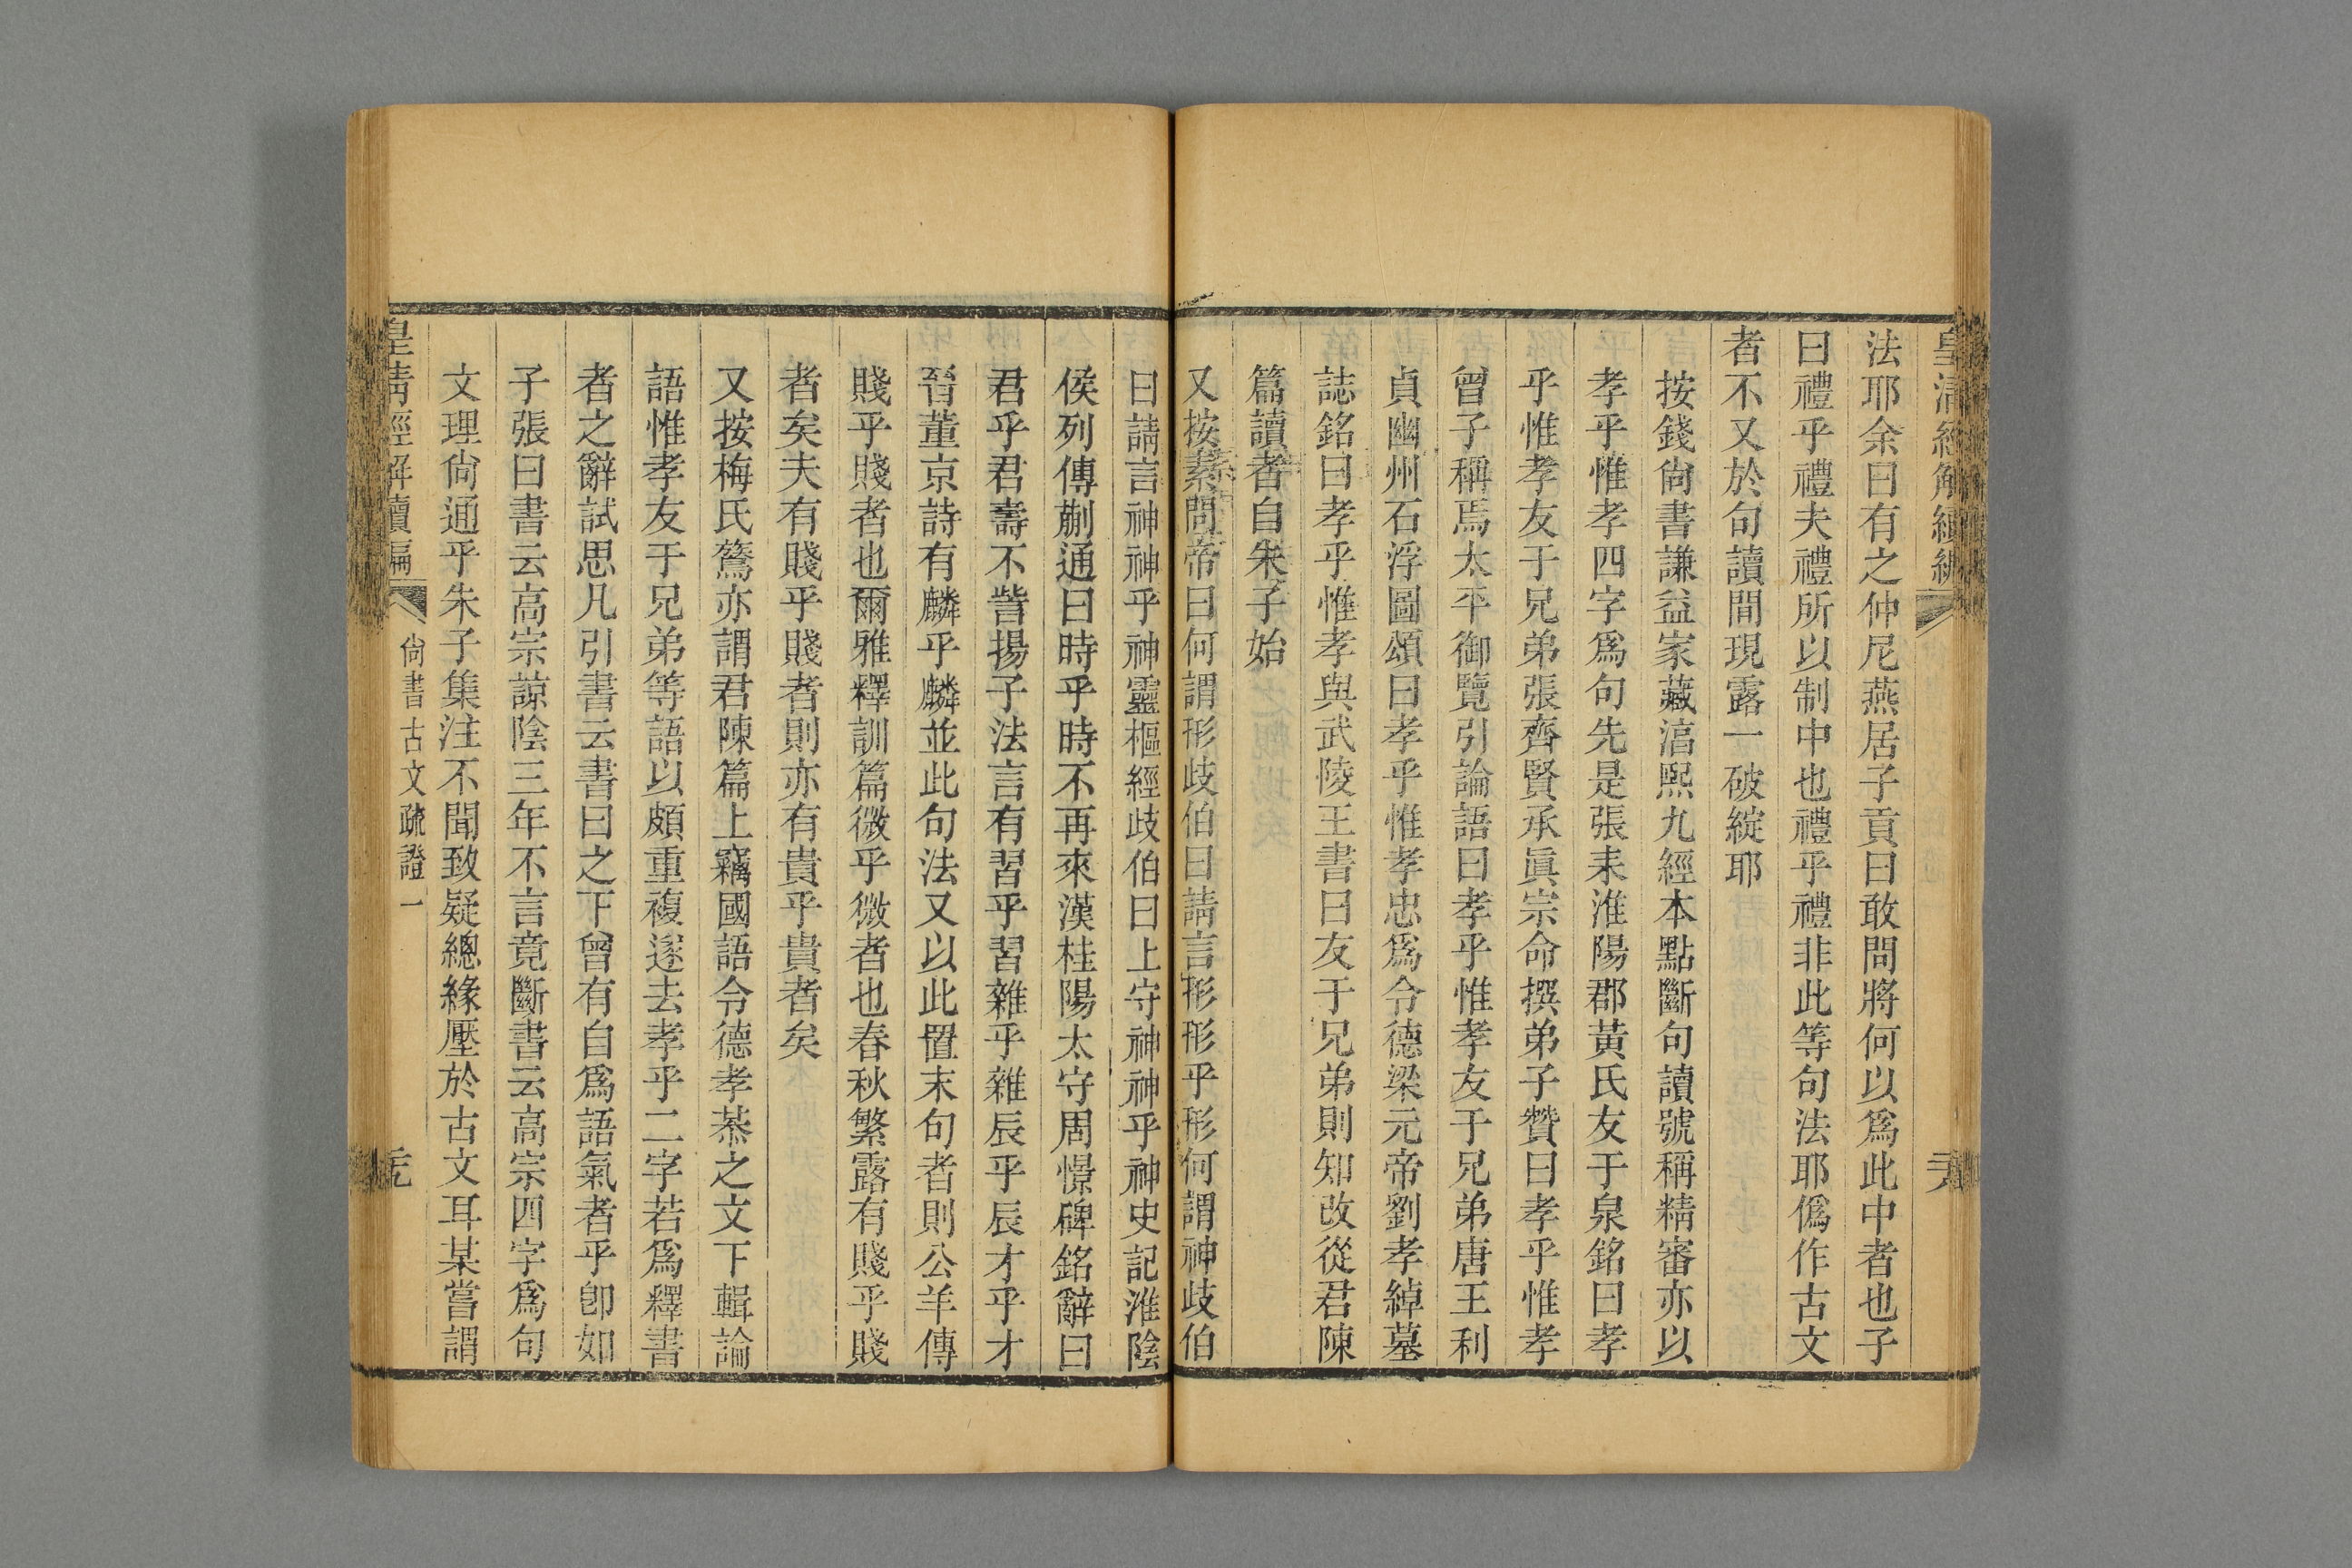 皇清經解續編
法耶余曰有之仲尼燕居子貢曰敢問將何以爲此中者也子
曰禮乎禮夫禮所以制中也禮乎禮非此等句法耶僞作古文
者不又於句讀間現露一破綻耶
按錢尙書謙益家藏淳熙九經本點斷句讀號稱精審亦以
孝乎惟孝四字爲句先是張耒淮陽郡黃氏友于泉銘曰孝
乎惟孝友于兄弟張齊賢承眞宗命撰弟子贊曰孝乎惟孝
曾子稱焉太平御覽引論語曰孝乎惟孝友于兄弟唐王利
貞幽州石浮圖頌曰孝乎惟孝忠爲令德梁元帝劉孝綽墓
誌銘曰孝乎惟孝與武陵王書曰友于兄弟則知改從君陳
篇讀者自朱子始
又按素問帝曰何謂形歧伯曰請言形形乎形何謂神歧伯
曰請言神神乎神靈樞經歧伯曰上守神神乎神史記淮陰
侯列傳蒯通曰時乎時不再來漢桂陽太守周憬碑銘辭曰
君乎君壽不訾揚子法言有習乎習雜乎雜辰乎辰才乎才
晉董京詩有麟乎麟並此句法又以此置末句者則公羊傳
賤乎賤者也爾雅釋訓篇微乎微者也春秋繁露有賤乎賤
者矣夫有賤乎賤者則亦有貴乎貴者矣
又按梅氏鷟亦謂君陳篇上竊國語令德孝恭之文下輯論
語惟孝友于兄弟等語以頗重複遂去孝乎二字若爲釋書
者之辭試思凡引書云書曰之下曾有自爲語氣者乎卽如
子張曰書云高宗諒陰三年不言竟斷書云高宗四字爲句
文理尙通乎朱子集注不聞致疑總緣壓於古文耳某嘗謂
皇淸經解續編
尙書古文疏證一